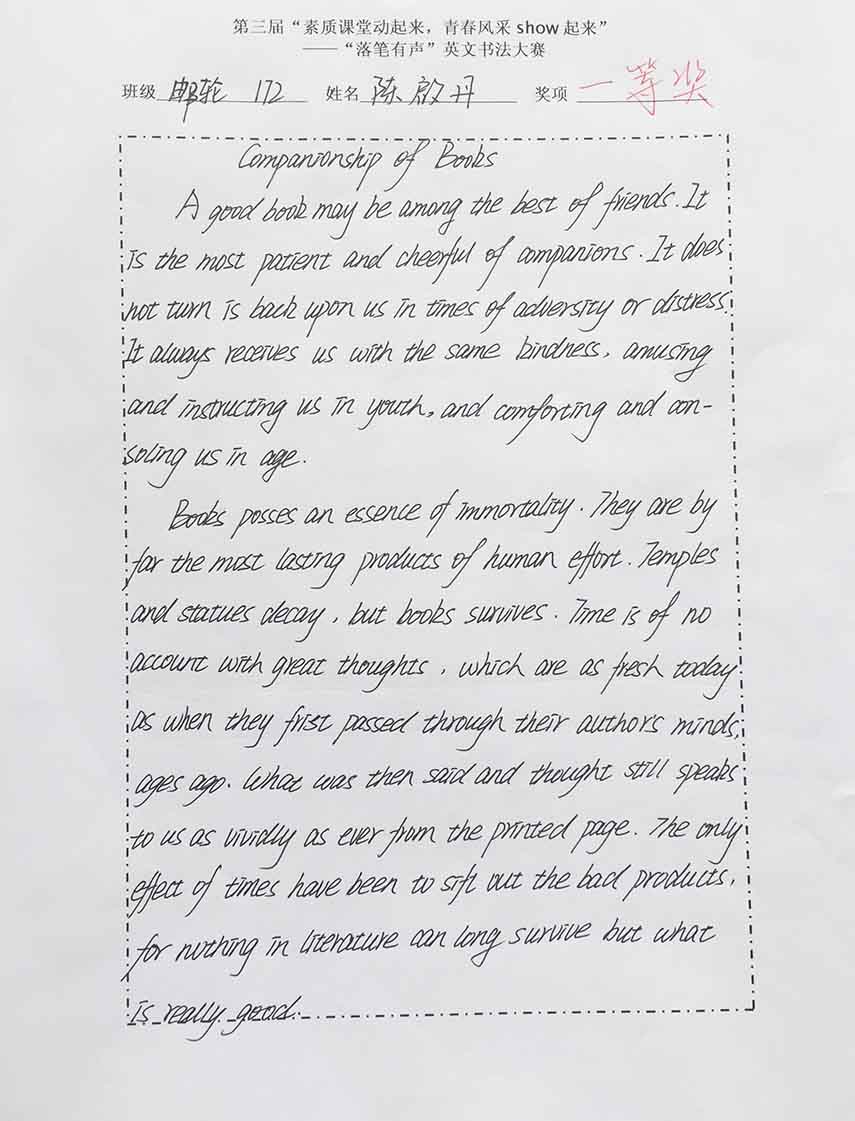 第三届“素质课堂动起来，青春风采 show 起来”
——“落笔有声”英文书法大赛
班级 邮轮 172 姓名 陈啟丹 奖项 一等奖
Companionship of Books
A good book may be among the best of friends. It
is the most patient and cheerful of companions. It does
not turn is back upon us in times of adversity or distress.
It always receives us with the same kindness, amusing
and instructing us in youth, and comforting and con-
soling us in age.
Books posses an essence of immortality. They are by
far the most lasting products of human effort. Temples
and statues decay, but books survives. Time is of no
account with great thoughts, which are as fresh today
as when they frist passed through their author's minds,
ages ago. What was then said and thought still speaks
to us as vividly as ever from the printed page. The only
effect of times have been to sift out the bad products,
for nothing in literature can long survive but what
is really good.